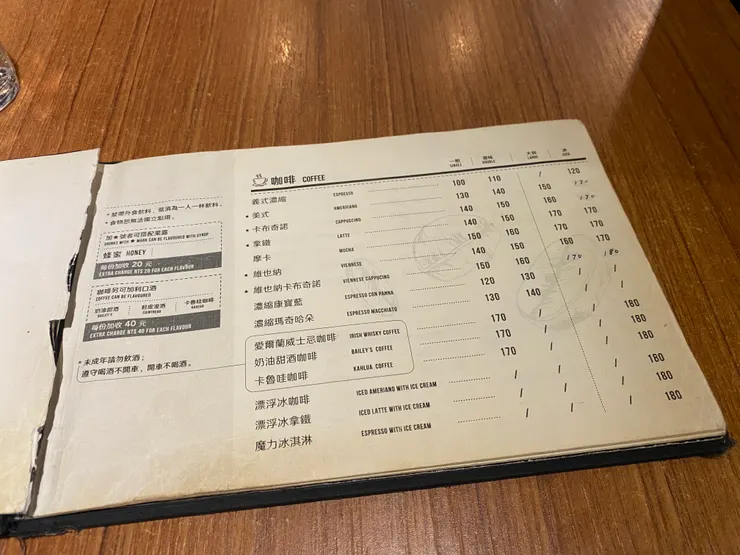 咖啡 COFFEE
一般 SINGLE
雙倍 DOUBLE
大杯 LARGE
冰 ICED
義式濃縮 ESPRESSO 100 110 / 120
• 美式 AMERICANO 130 140 150 170
卡布奇諾 CAPPUCCINO 140 150 160 170
• 拿鐵 LATTE 140 150 160 170
摩卡 MOCHA 150 160 170 170
• 維也納 VIENNESE 140 150 160 170
• 維也納卡布奇諾 VIENNESE CAPPUCINO 150 160 170 180
濃縮康寶藍 ESPRESSO CON PANNA 120 130 / /
濃縮瑪奇哈朵 ESPRESSO MACCHIATO 130 140 / /
愛爾蘭威士忌咖啡 IRISH WHISKY COFFEE 170 / / 180
奶油甜酒咖啡 BAILEY'S COFFEE 170 / / 180
卡魯哇咖啡 KAHLUA COFFEE 170 / / 180
漂浮冰咖啡 ICED AMERIANO WITH ICE CREAM / / / 180
漂浮冰拿鐵 ICED LATTE WITH ICE CREAM / / / 180
魔力冰淇淋 ESPRESSO WITH ICE CREAM / / / 180
* 禁帶外食飲料，低消為一人一杯飲料。
* 食物恕無法獨立點用。
加★號者可搭配果露
DRINKS WITH ★ MARK CAN BE FLAVOURED WITH SYRUP
蜂蜜 HONEY
每份加收 20 元
EXTRA CHARGE NT$ 20 FOR EACH FLAVOUR
咖啡另可加利口酒
COFFEE CAN BE FLAVOURED
奶油甜酒 BAILEY'S
酒 COINTREAU
卡魯哇咖啡 KAHLUA
每份加收 40 元
EXTRA CHARGE NT$ 40 FOR EACH FLAVOUR
* 未成年請勿飲酒；
遵守喝酒不開車，開車不喝酒。